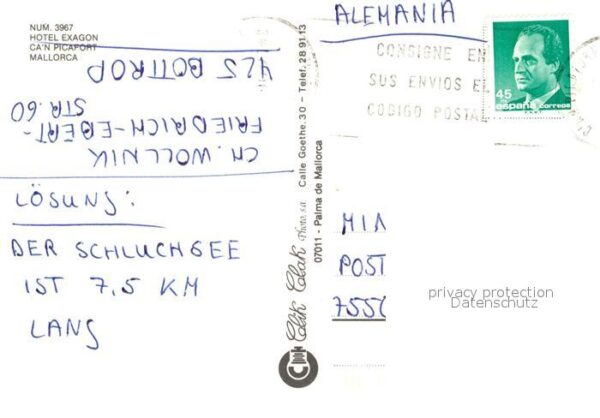 NUM. 3967
HOTEL EXAGON
CA'N PICAFORT
MALLORCA
CH. WOLLNIK
FRIEDRICH-EBERT-
STR. 60
425 BOTTROP
LÖSUNG:
DER SCHLUCHSEE
IST 7,5 KM
LANG
Clik Clak Photo, s.a. Calle Goethe, 30 - Telef. 28 91 13
07011 - Palma de Mallorca
ALEMANIA
CONSIGNE EN
SUS ENVIOS EL
CODIGO POSTAL
45
españa correos
MIA
POST
755
privacy protection
Datenschutz